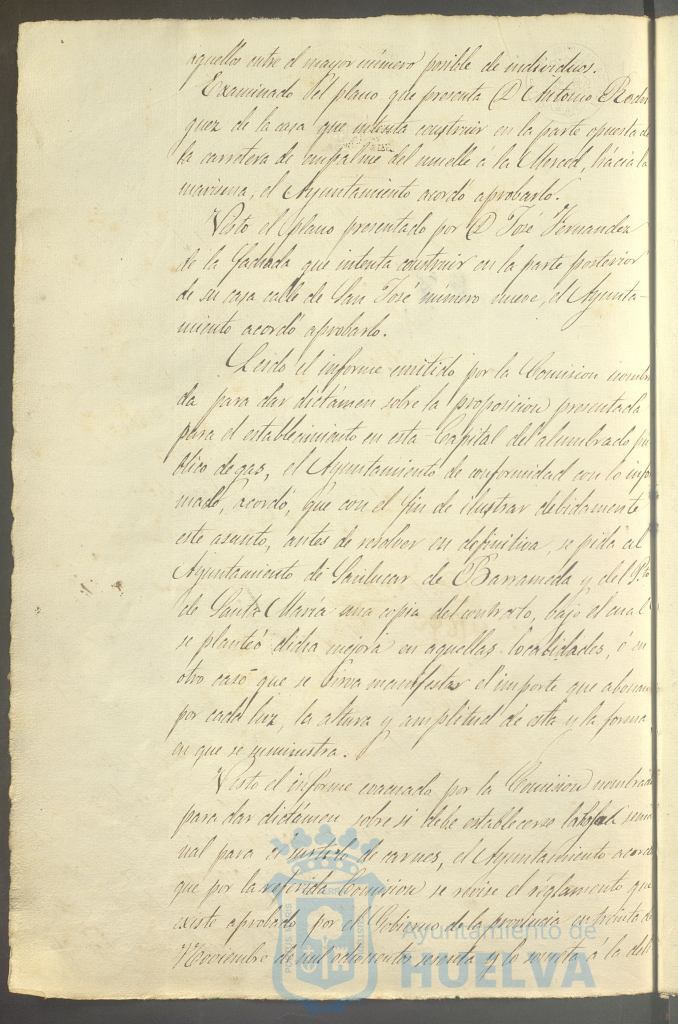 aquellos entre el mayor número posible de individuos.
Examinado del plano que presenta D. Antonio Rodri
guez de la casa que intenta construir en la parte opuesta de
la carretera de empalme del muelle á la Merced, hácia la
marisma, el Ayuntamiento acordó aprobarlo.
Visto el plano presentado por D. José Fernandez
de la fachada que intenta construir en la parte posterior
de su casa calle de San José número nueve, el Ayunta-
miento acordó aprobarlo.
Leido el informe emitido por la Comision nombra
da para dar dictámen sobre la proposicion presentada
para el establecimiento en esta Capital del alumbrado pú
blico de gas, el Ayuntamiento de conformidad con lo infor
mado, acordó, que con el fin de ilustrar debidamente
este asunto, antes de resolver en definitiva, se pida al
Ayuntamiento de Sanlucar de Barrameda y del Pto
de Santa María una copia del contrato, bajo el cual
se planteó dicha mejora en aquellas localidades, ó en
otro caso que se sirva manifestar el importe que abonan
por cada luz, la altura y amplitud de esta y la forma
en que se suministra.
Visto el informe evacuado por la Comision nombrada
para dar dictámen sobre si debe establecerse tabla
para el surtido de carnes, el Ayuntamiento acordó
que por la referida Comision se revise el reglamento que
existe aprobado por el Gobierno de la provincia en treinta de
Noviembre de mil ochocientos sesenta y lo someta á la deli
Ayuntamiento de
HUELVA